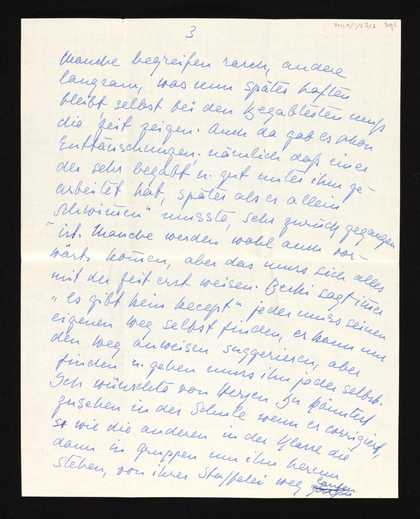 3
Manche begreifen rasch, andere
langsam, was nun später haften
bleibt selbst bei den Begabtesten muß
die Zeit zeigen. Auch da gab es schon
Enttäuschungen. nämlich daß einer
der sehr begabt u. gut unter ihm ge-
arbeitet hat, später als er allein
"schwimmen" musste, sehr zurück gegangen
ist. Manche werden wohl auch vor-
wärts kommen, aber das muss sich alles
mit der Zeit erst weisen. sagt immer
"es gibt kein Recept" jeder muss seinen
eigenen Weg selbst finden, er kann nur
den Weg anweisen suggerieren, aber
finden u. gehen muss ihn jeder selbst.
Ich wünschte von Herzen Du könntest
zusehen in der Schule wenn er corrigiert,
so wie die anderen in der Klasse die
dann in Gruppen um ihn herum
stehen, von ihrer Staffelei weg laufen